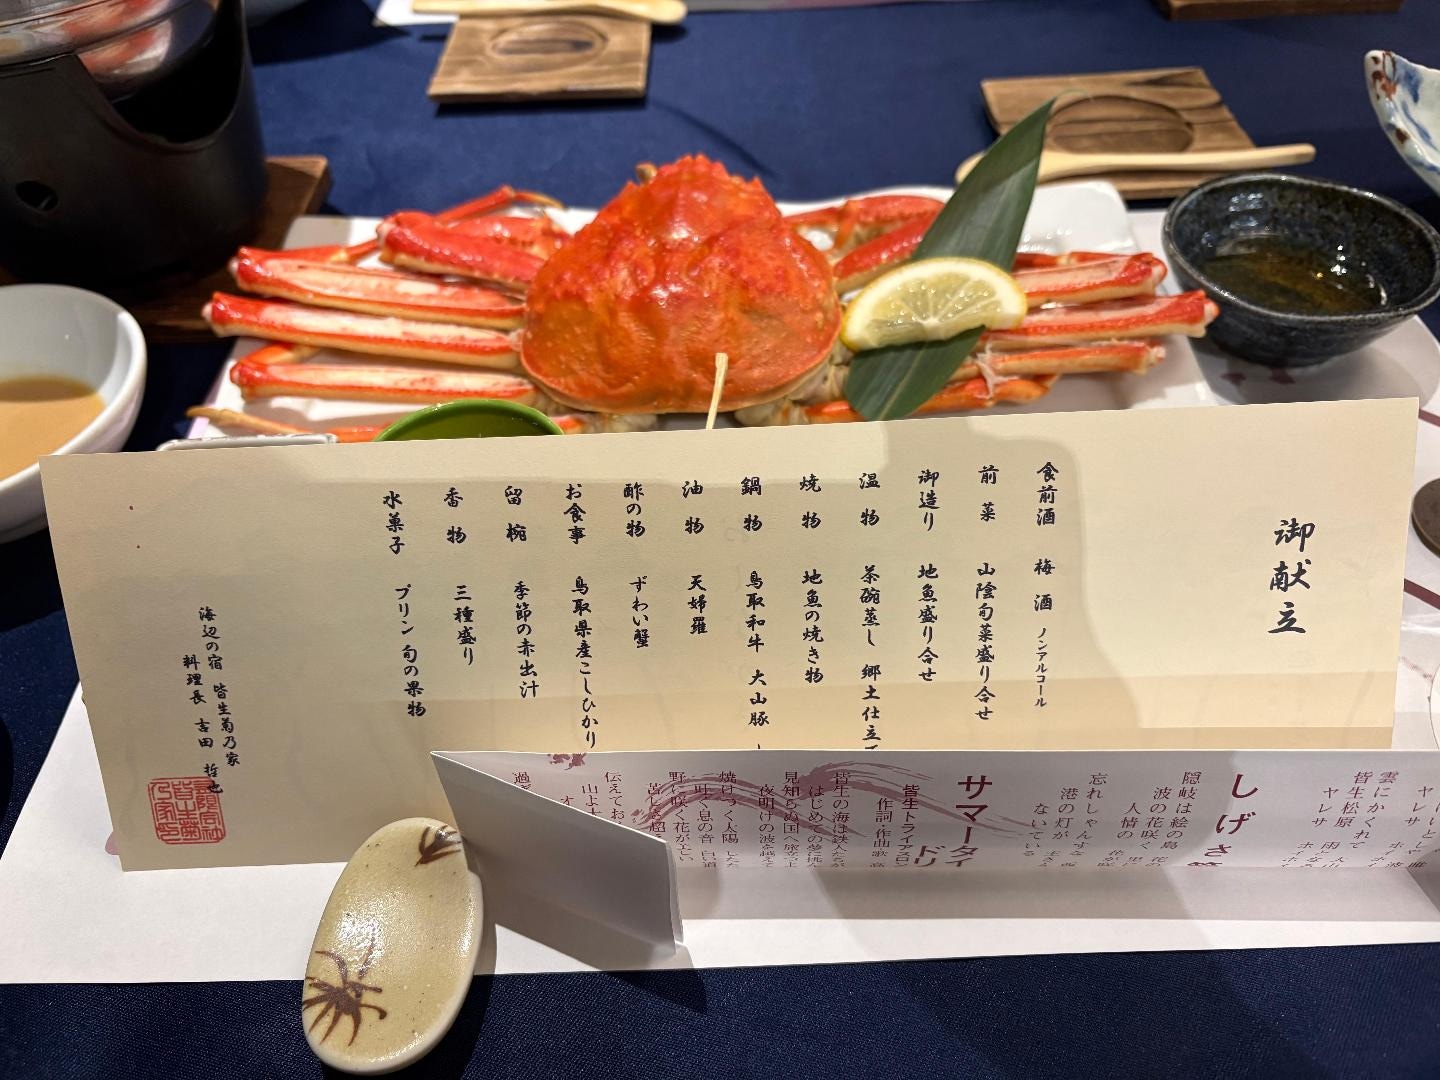 御献立
食前酒 梅酒 ノンアルコール
前菜 山陰旬菜盛り合せ
御造り 地魚盛り合せ
温物 茶碗蒸し 郷土仕立
焼物 地魚の焼き物
鍋物 鳥取和牛 大山豚
油物 天婦羅
酢の物 ずわい蟹
お食事 鳥取県産こしひかり
留椀 季節の赤出汁
香物 三種盛り
水菓子 プリン 旬の果物
海辺の宿 皆生菊乃家
料理長 吉田 哲也
雲にかくれて
皆生松原
ヤレサ
しげさ
隠岐は絵の島
波の花咲く
人情の
忘れしゃんすな
港の灯が
ないている
サマータイ
ドリ
皆生トライアスロン
作詞・作曲・歌
皆生の海は鉄人たちが
はじめての夢に挑
見知らぬ国へ旅立つ
夜明けの波を越えて
焼けつく太陽
吐く息の音 白い道
野に咲く花が
伝えてお
山よ